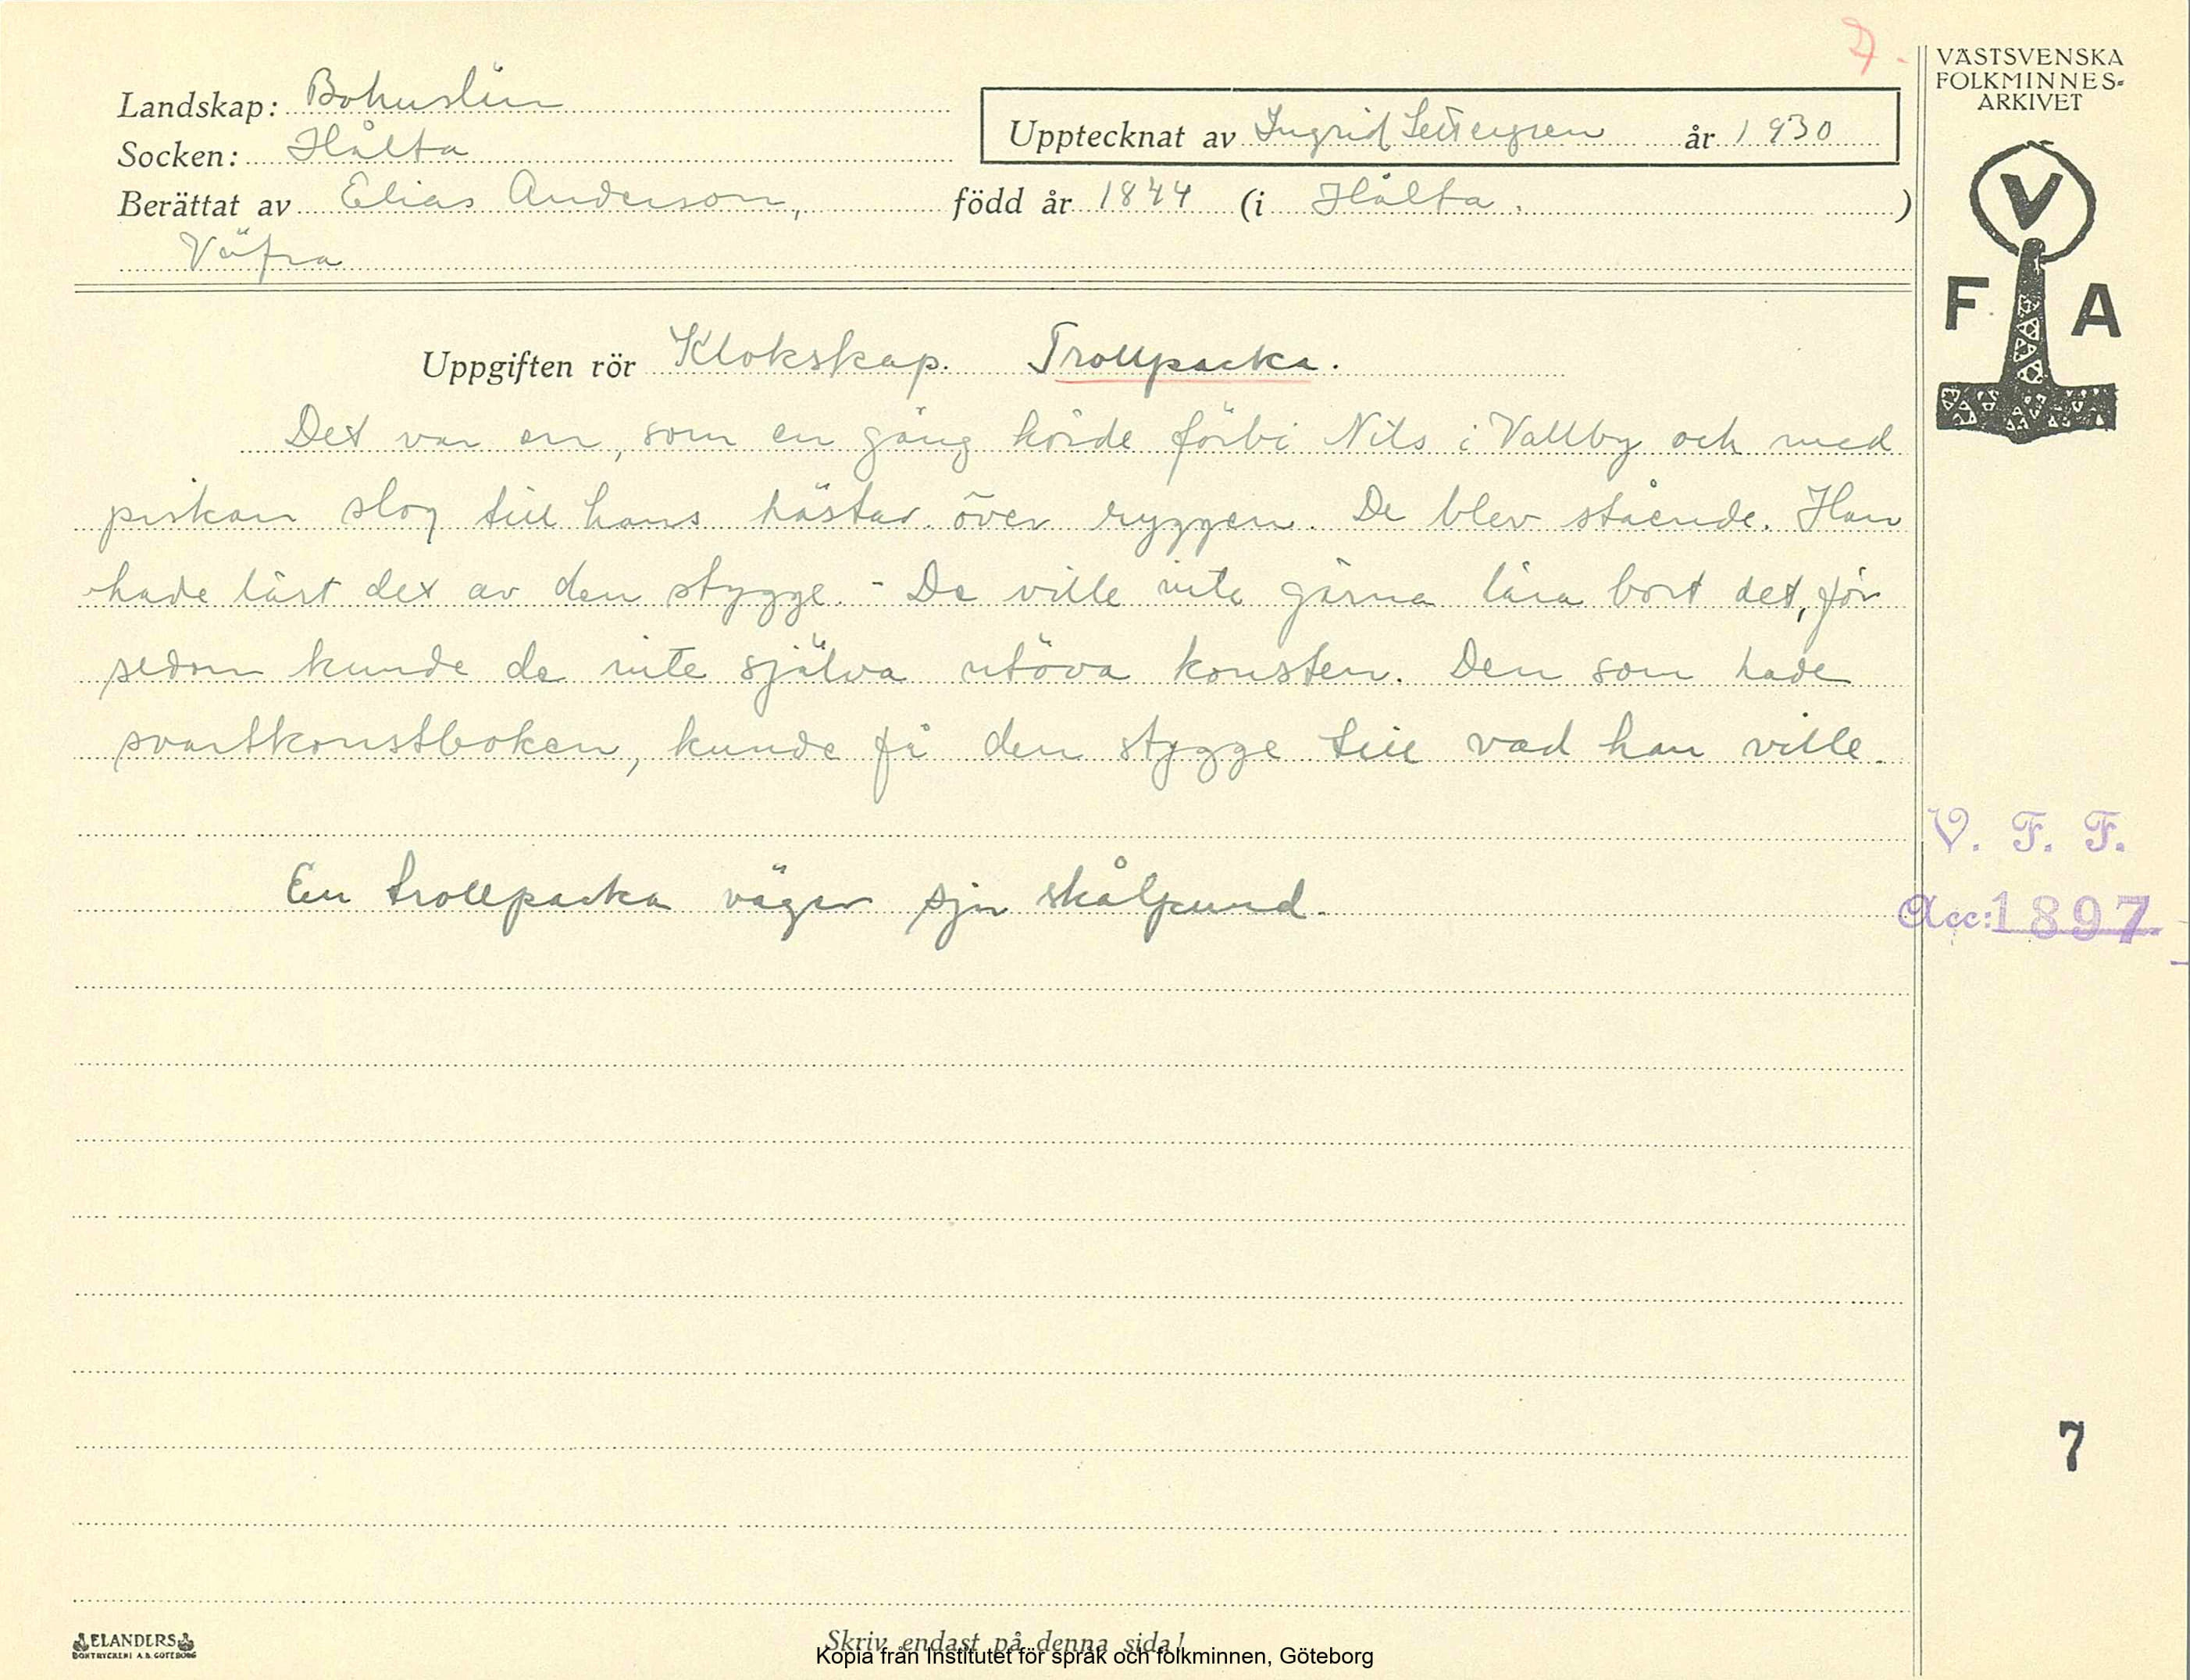 D.
VÄSTSVENSKA
FOLKMINNES-
ARKIVET
Landskap: Bohuslän
Socken: Hålta
Upptecknat av Ingrid år 1930
Berättat av Elias Anderson, född år 1844 (i Hålta. )
Väfra
V
F A
Uppgiften rör Klokskap. Trollpacka.
Det var en, som en gång körde förbi Nils i Vallby och med
piskan slog till hans hästar över ryggen. De blev stående. Han
hade lärt det av den stygge. - De ville inte gärna lära bort det, för
sedan kunde de inte själva utöva konsten. Den som hade
svartkonstboken, kunde få den stygge till vad han ville.
V. F. F.
En trollpacka väger sju skålpund.
Acc: 1897
7
ELANDERS
BOKTRYCKERI A.B. GÖTEBORG
Skriv endast på denna sida!
Kopia från Institutet för språk och folkminnen, Göteborg